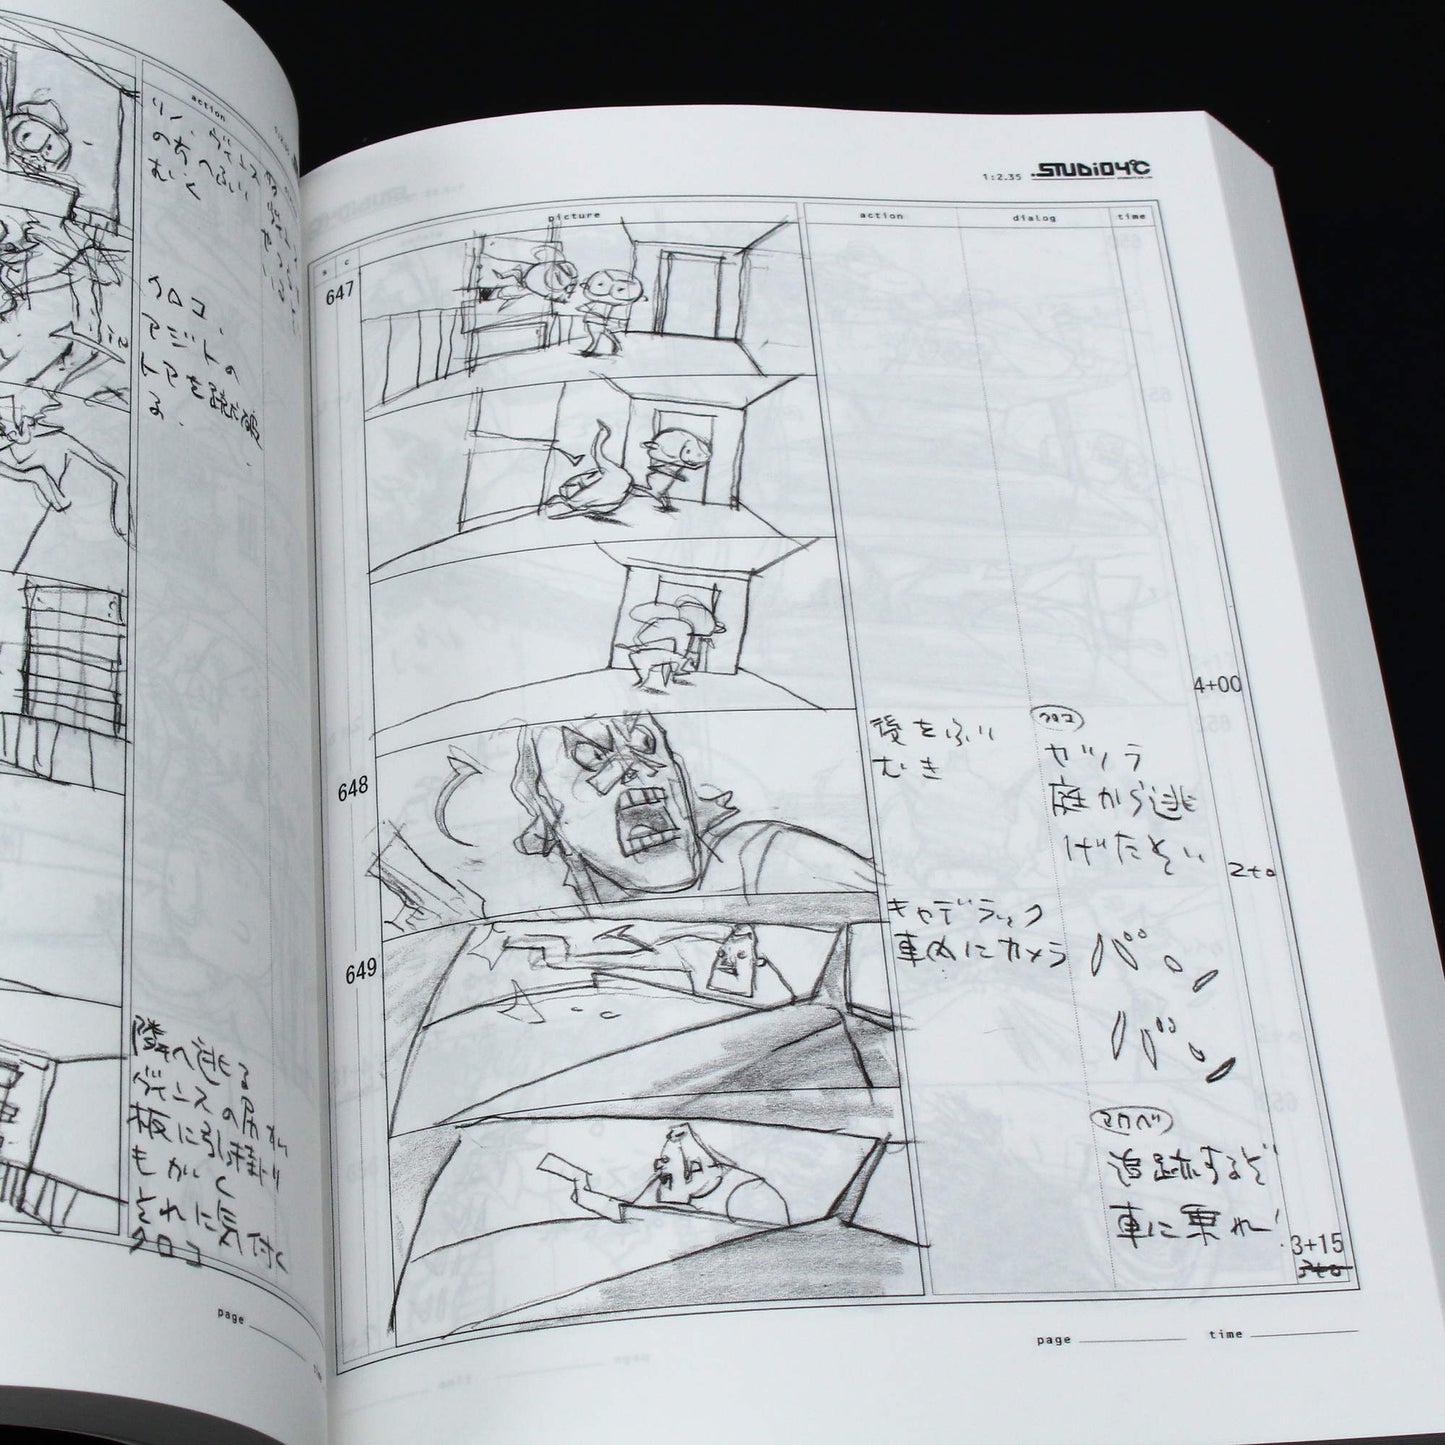 action
リン、ヴィンス
の方へふり
むく
クロコ、
アジトの
ドアを蹴破
る.
隣へ逃る
ヴィンスの尻が
板に引掛り
もがく
それに気付く
クロコ
page
1:2.35 .STUDiO4℃
s c picture action dialog time
647
4+00
648
後をふり
むき
クロコ
ヤツラ
庭から逃
げたぞい
2+0
649
キャデラック
車内にカメラ
パン
パン
マクベ
追跡するぞ
車に乗れー!
3+15
3+0
page time